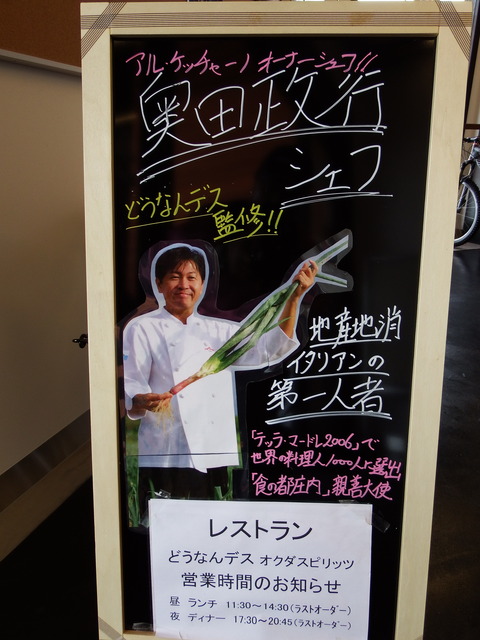 アル・ケッチァーノ オーナーシェフ!!
奥田政行
シェフ
どうなんデス
監修!!
地産地消
イタリアンの
第一人者
「テッラ・マードレ2006」で
世界の料理人1000人に選出
「食の都庄内」親善大使
レストラン
どうなんデス オクダスピリッツ
営業時間のお知らせ
昼 ランチ 11:30～14:30(ラストオーダー)
夜 ディナー 17:30～20:45(ラストオーダー)